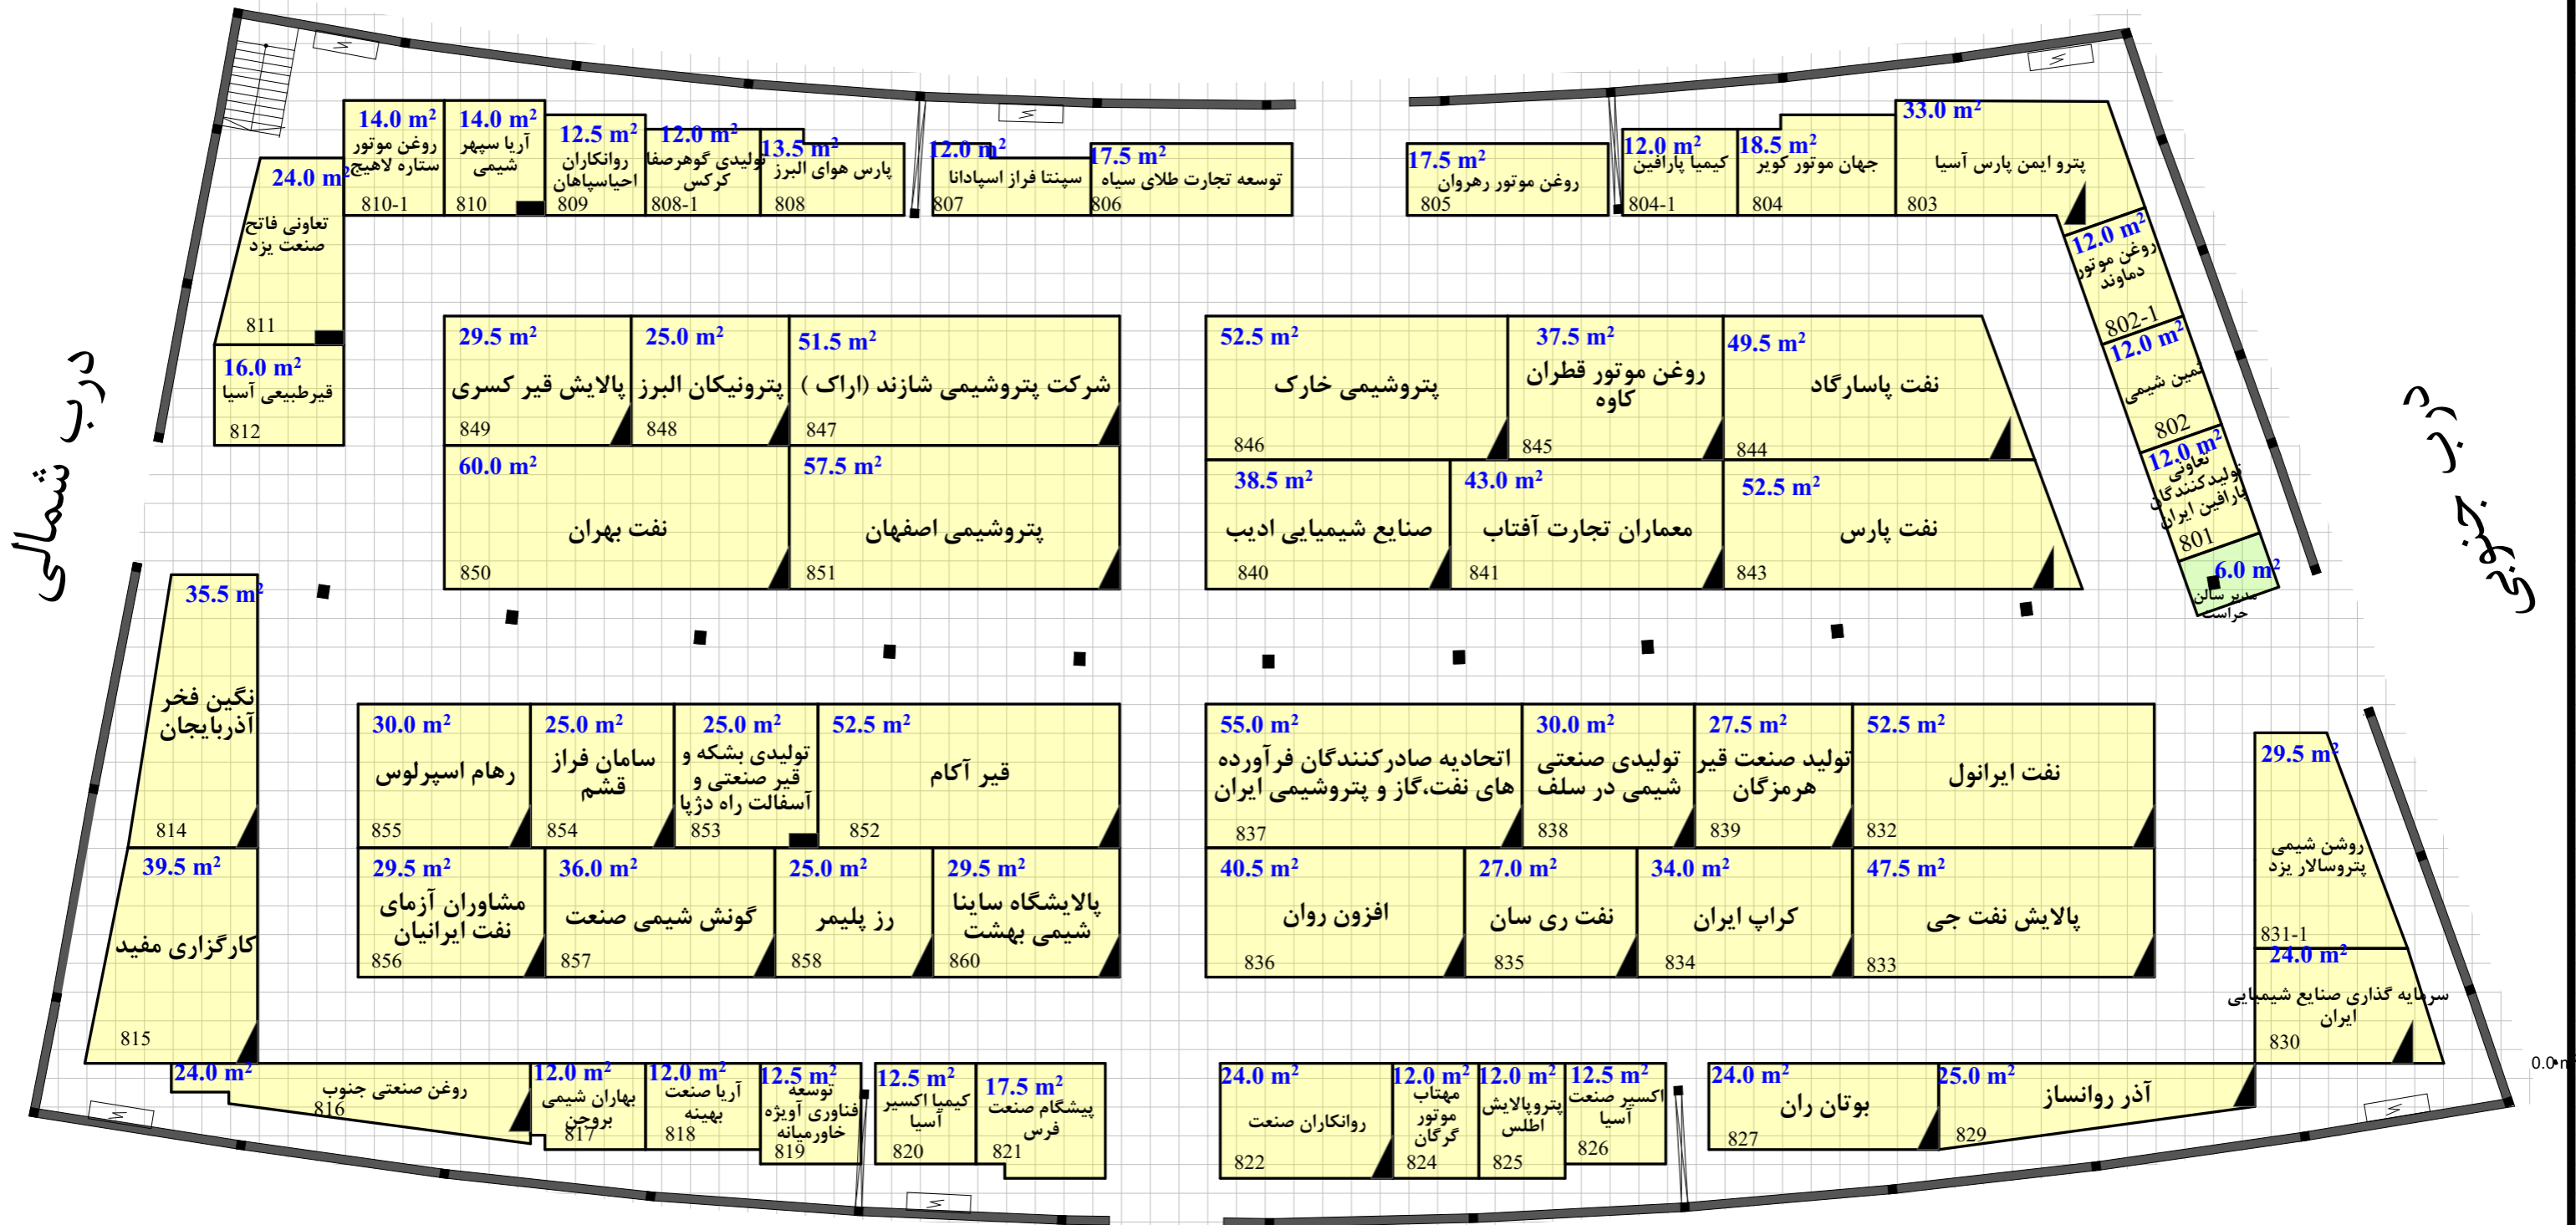 درب شمالی
درب جنوبی
14.0 m²
روغن موتور
ستاره لاهیج
810-1
14.0 m²
آریا سپهر
شیمی
810
12.5 m²
روانکاران
احیاسپاهان
809
12.0 m²
تولیدی گوهرصفا
کرکس
808-1
13.5 m²
پارس هوای البرز
808
12.0 m²
سپنتا فراز اسپادانا
807
17.5 m²
توسعه تجارت طلای سیاه
806
17.5 m²
روغن موتور رهروان
805
12.0 m²
کیمیا پارافین
804-1
18.5 m²
جهان موتور کویر
804
33.0 m²
پترو ایمن پارس آسیا
803
24.0 m²
تعاونی فاتح
صنعت یزد
811
16.0 m²
قیرطبیعی آسیا
812
12.0 m²
روغن موتور
دماوند
802-1
12.0 m²
ثمین شیمی
802
12.0 m²
تعاونی
تولیدکنندگان
پارافین ایران
801
6.0 m²
مدیر سالن
حراست
29.5 m²
پالایش قیر کسری
849
25.0 m²
پترونیکان البرز
848
51.5 m²
شرکت پتروشیمی شازند (اراک )
847
52.5 m²
پتروشیمی خارک
846
37.5 m²
روغن موتور قطران
کاوه
845
49.5 m²
نفت پاسارگاد
844
60.0 m²
نفت بهران
850
57.5 m²
پتروشیمی اصفهان
851
38.5 m²
صنایع شیمیایی ادیب
840
43.0 m²
معماران تجارت آفتاب
841
52.5 m²
نفت پارس
843
35.5 m²
نگین فخر
آذربایجان
814
39.5 m²
کارگزاری مفید
815
30.0 m²
رهام اسپرلوس
855
25.0 m²
سامان فراز
قشم
854
25.0 m²
تولیدی بشکه و
قیر صنعتی و
آسفالت راه دژپا
853
52.5 m²
قیر آکام
852
55.0 m²
اتحادیه صادرکنندگان فرآورده
های نفت،گاز و پتروشیمی ایران
837
30.0 m²
تولیدی صنعتی
شیمی در سلف
838
27.5 m²
تولید صنعت قیر
هرمزگان
839
52.5 m²
نفت ایرانول
832
29.5 m²
مشاوران آزمای
نفت ایرانیان
856
36.0 m²
گونش شیمی صنعت
857
25.0 m²
رز پلیمر
858
29.5 m²
پالایشگاه ساینا
شیمی بهشت
860
40.5 m²
افزون روان
836
27.0 m²
نفت ری سان
835
34.0 m²
کراپ ایران
834
47.5 m²
پالایش نفت جی
833
29.5 m²
روشن شیمی
پتروسالار یزد
831-1
24.0 m²
سرمایه گذاری صنایع شیمیایی
ایران
830
24.0 m²
روغن صنعتی جنوب
816
12.0 m²
بهاران شیمی
بروجن
817
12.0 m²
آریا صنعت
بهینه
818
12.5 m²
توسعه
فناوری آویژه
خاورمیانه
819
12.5 m²
کیمیا اکسیر
آسیا
820
17.5 m²
پیشگام صنعت
فرس
821
24.0 m²
روانکاران صنعت
822
12.0 m²
مهتاب
موتور
گرگان
824
12.0 m²
پتروپالایش
اطلس
825
12.5 m²
اکسیر صنعت
آسیا
826
24.0 m²
بوتان ران
827
25.0 m²
آذر روانساز
829